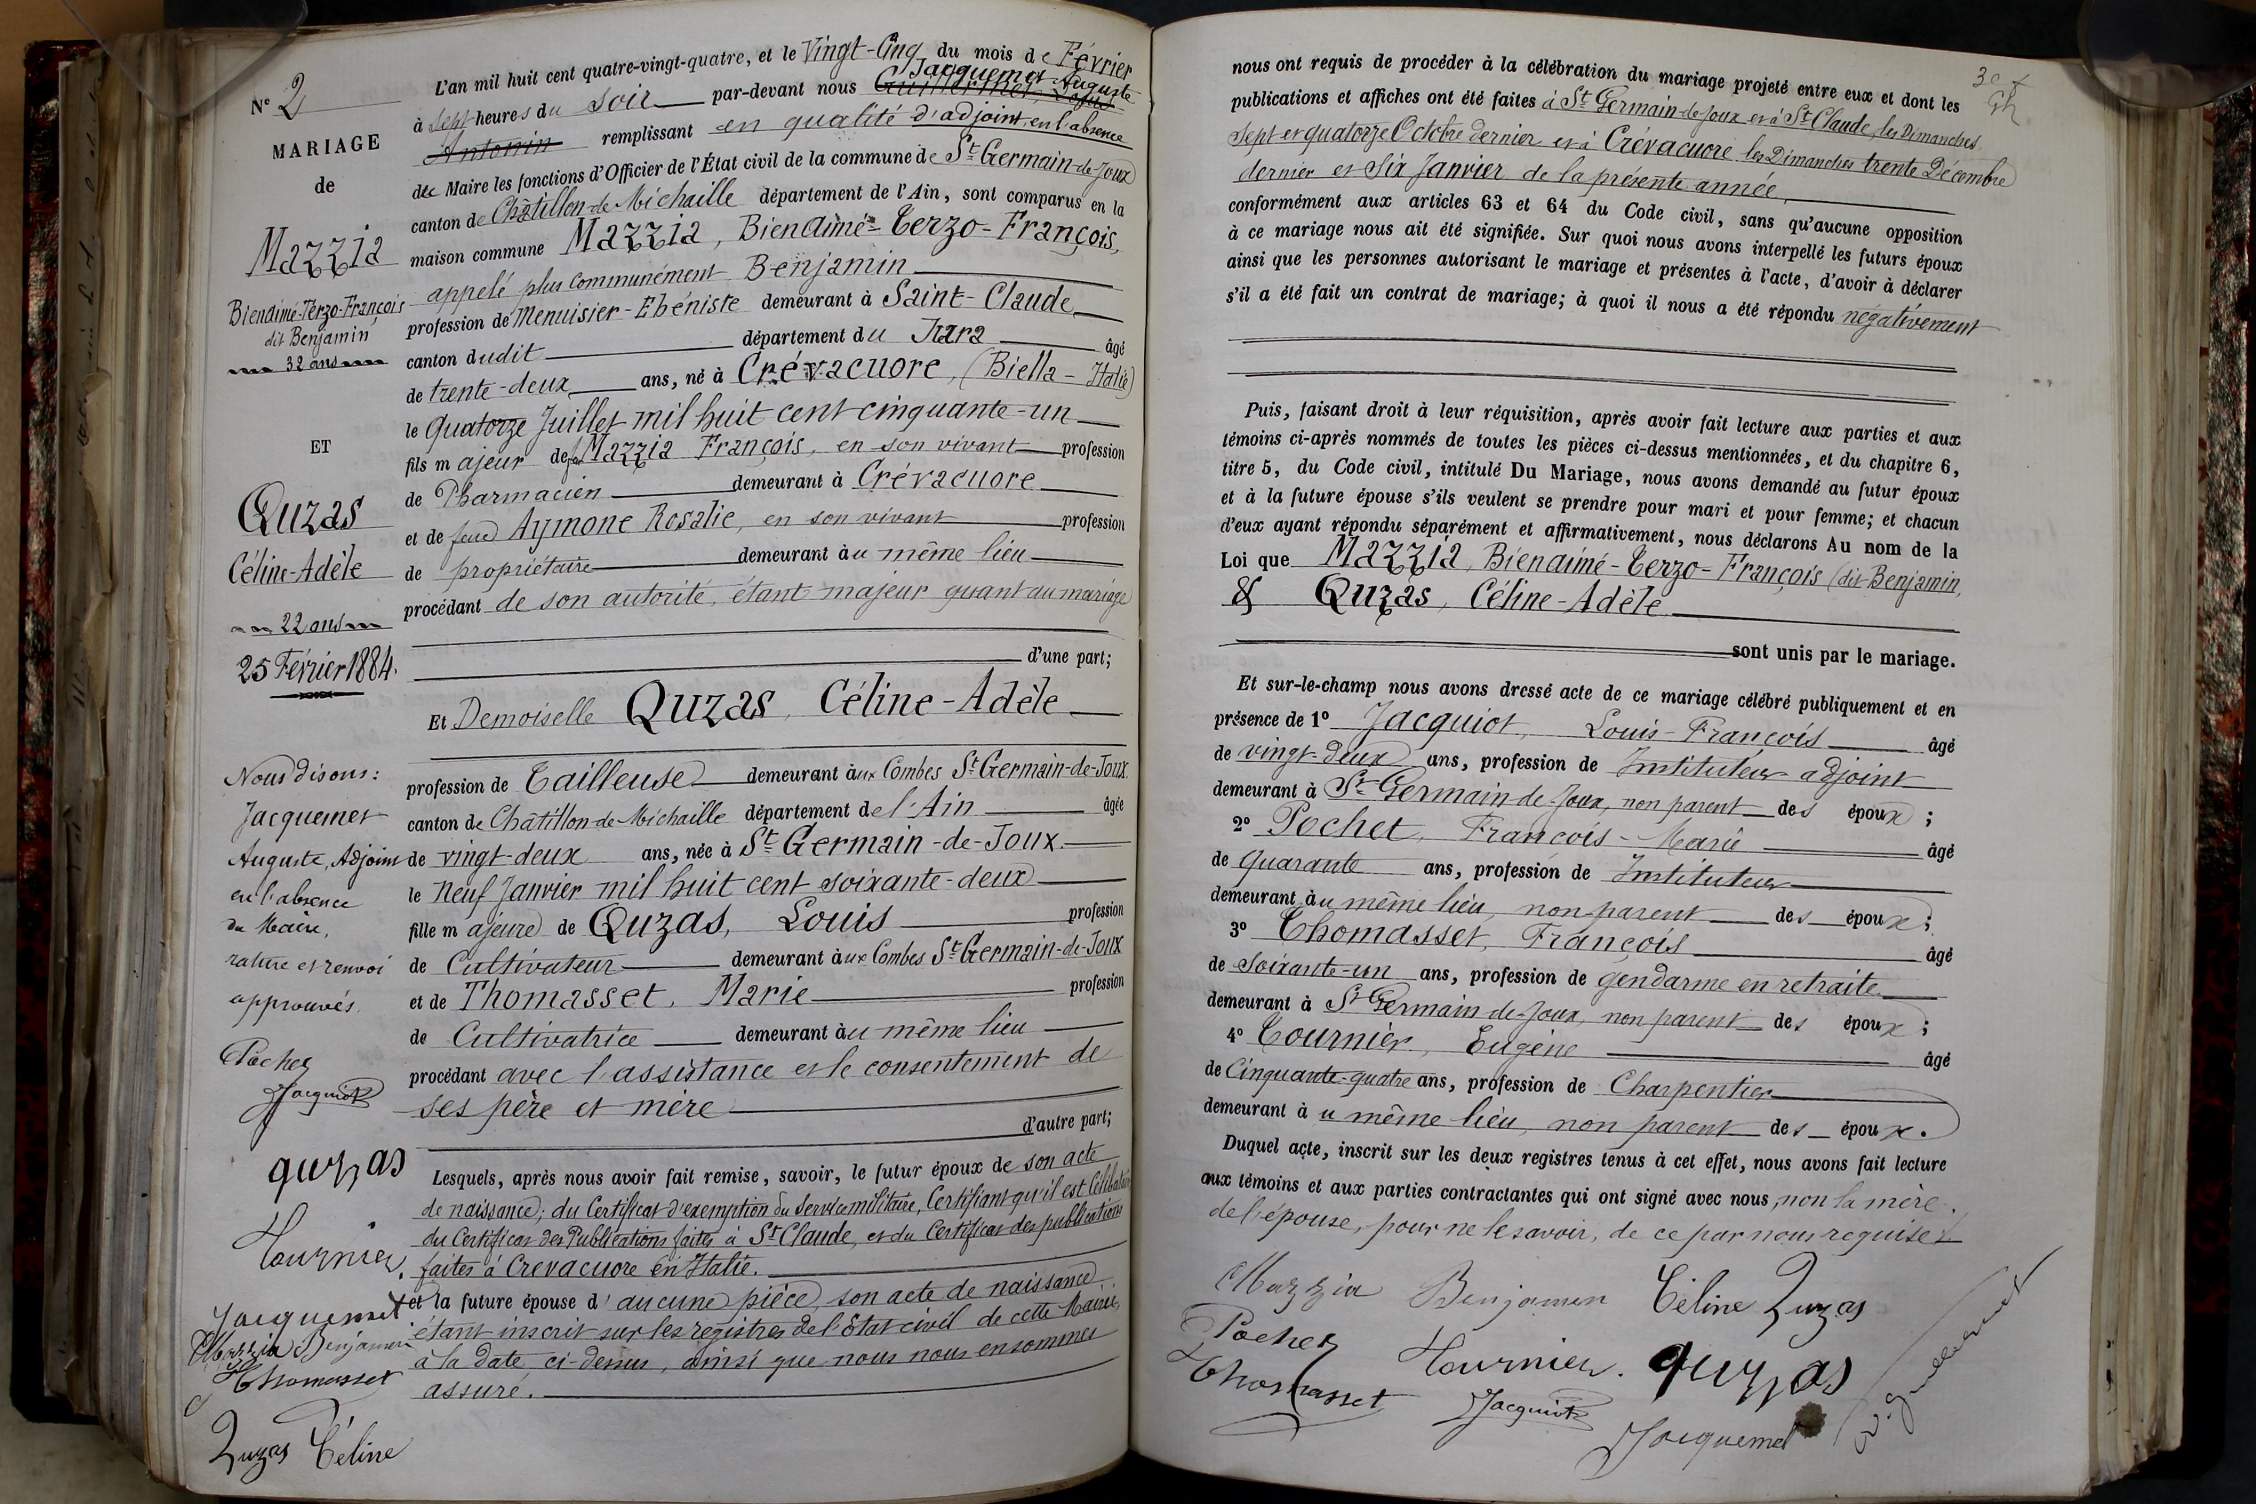 N° 2
MARIAGE
de
Mazzia
Bienaimé-Terzo-François
dit Benjamin
32 ans
ET
Quzas
Céline-Adèle
22 ans
25 Février 1884.
Nous disons:
Jacquemet
Auguste, Adjoint
en l'absence
du Maire,
rature et renvoi
approuvés.
Pochet
Jacquiot
quzas
Tournier.
Jacquemet
Mazzia Benjamin
Thomasset
Quzas Céline
L'an mil huit cent quatre-vingt-quatre, et le Vingt-Cinq du mois de Février
Jacquemet Auguste
à Sept heures du soir par-devant nous
Antonin remplissant en qualité d'adjoint, en l'absence
de Maire les fonctions d'Officier de l'État civil de la commune de St Germain-de-Joux
canton de Châtillon-de-Michaille département de l'Ain, sont comparus en la
maison commune Mazzia, Bienaimé-Terzo-François,
appelé plus communément Benjamin
profession de Menuisier-Ebéniste demeurant à Saint-Claude
canton dudit département du Jura âgé
de trente-deux ans, né à Crévacuore, (Biella - Italie)
le Quatorze Juillet mil huit cent cinquante-un
fils majeur de feu Mazzia François, en son vivant profession
de Pharmacien demeurant à Crévacuore
et de feue Aymone Rosalie, en son vivant profession
de propriétaire demeurant au même lieu
procédant de son autorité, étant majeur quant au mariage
d'une part;
Et Demoiselle Quzas, Céline-Adèle
profession de Tailleuse demeurant aux Combes St Germain-de-Joux
canton de Châtillon-de-Michaille département de l'Ain âgée
de vingt-deux ans, née à St Germain-de-Joux.
le Neuf Janvier mil huit cent soixante-deux
fille majeure de Quzas, Louis profession
de Cultivateur demeurant aux Combes St Germain-de-Joux
et de Thomasset, Marie profession
de Cultivatrice demeurant au même lieu
procédant avec l'assistance et le consentement de
ses père et mère
d'autre part;
Lesquels, après nous avoir fait remise, savoir, le futur époux de son acte
de naissance; du Certificat d'exemption du Service militaire, Certifiant qu'il est Célibataire
du Certificat des Publications faites à St Claude, et du Certificat des publications
faites à Crevacuore en Italie.
et la future épouse d'aucune pièce, son acte de naissance
étant inscrit sur les registres de l'Etat civil de cette Mairie,
à la date ci-dessus, ainsi que nous nous en sommes
assuré.
nous ont requis de procéder à la célébration du mariage projeté entre eux et dont les
publications et affiches ont été faites à St Germain-de-Joux et à St Claude, les Dimanches
sept et quatorze Octobre dernier et à Crévacuore les Dimanches trente Décembre
dernier et Six Janvier de la présente année,
conformément aux articles 63 et 64 du Code civil, sans qu'aucune opposition
à ce mariage nous ait été signifiée. Sur quoi nous avons interpellé les futurs époux
ainsi que les personnes autorisant le mariage et présentes à l'acte, d'avoir à déclarer
s'il a été fait un contrat de mariage; à quoi il nous a été répondu négativement
Puis, faisant droit à leur réquisition, après avoir fait lecture aux parties et aux
témoins ci-après nommés de toutes les pièces ci-dessus mentionnées, et du chapitre 6,
titre 5, du Code civil, intitulé Du Mariage, nous avons demandé au futur époux
et à la future épouse s'ils veulent se prendre pour mari et pour femme; et chacun
d'eux ayant répondu séparément et affirmativement, nous déclarons Au nom de la
Loi que Mazzia, Bienaimé-Terzo-François (dit Benjamin,
& Quzas, Céline-Adèle
sont unis par le mariage.
Et sur-le-champ nous avons dressé acte de ce mariage célébré publiquement et en
présence de 1° Jacquiot, Louis-François âgé
de vingt-deux ans, profession de Instituteur adjoint
demeurant à St Germain-de-Joux, non parent des époux;
2° Pochet, François-Marie âgé
de Quarante ans, profession de Instituteur
demeurant au même lieu, non parent des époux;
3° Thomasset, François âgé
de Soixante-un ans, profession de gendarme en retraite
demeurant à St Germain-de-Joux, non parent des époux;
4° Tournier, Eugène âgé
de Cinquante-quatre ans, profession de Charpentier
demeurant au même lieu, non parent des époux.
Duquel acte, inscrit sur les deux registres tenus à cet effet, nous avons fait lecture
aux témoins et aux parties contractantes qui ont signé avec nous, non la mère
de l'épouse, pour ne le savoir, de ce par nous requise
Mazzia Benjamin Céline Quzas
Pochet Tournier. quzas
Thomasset Jacquiot
Jacquemet